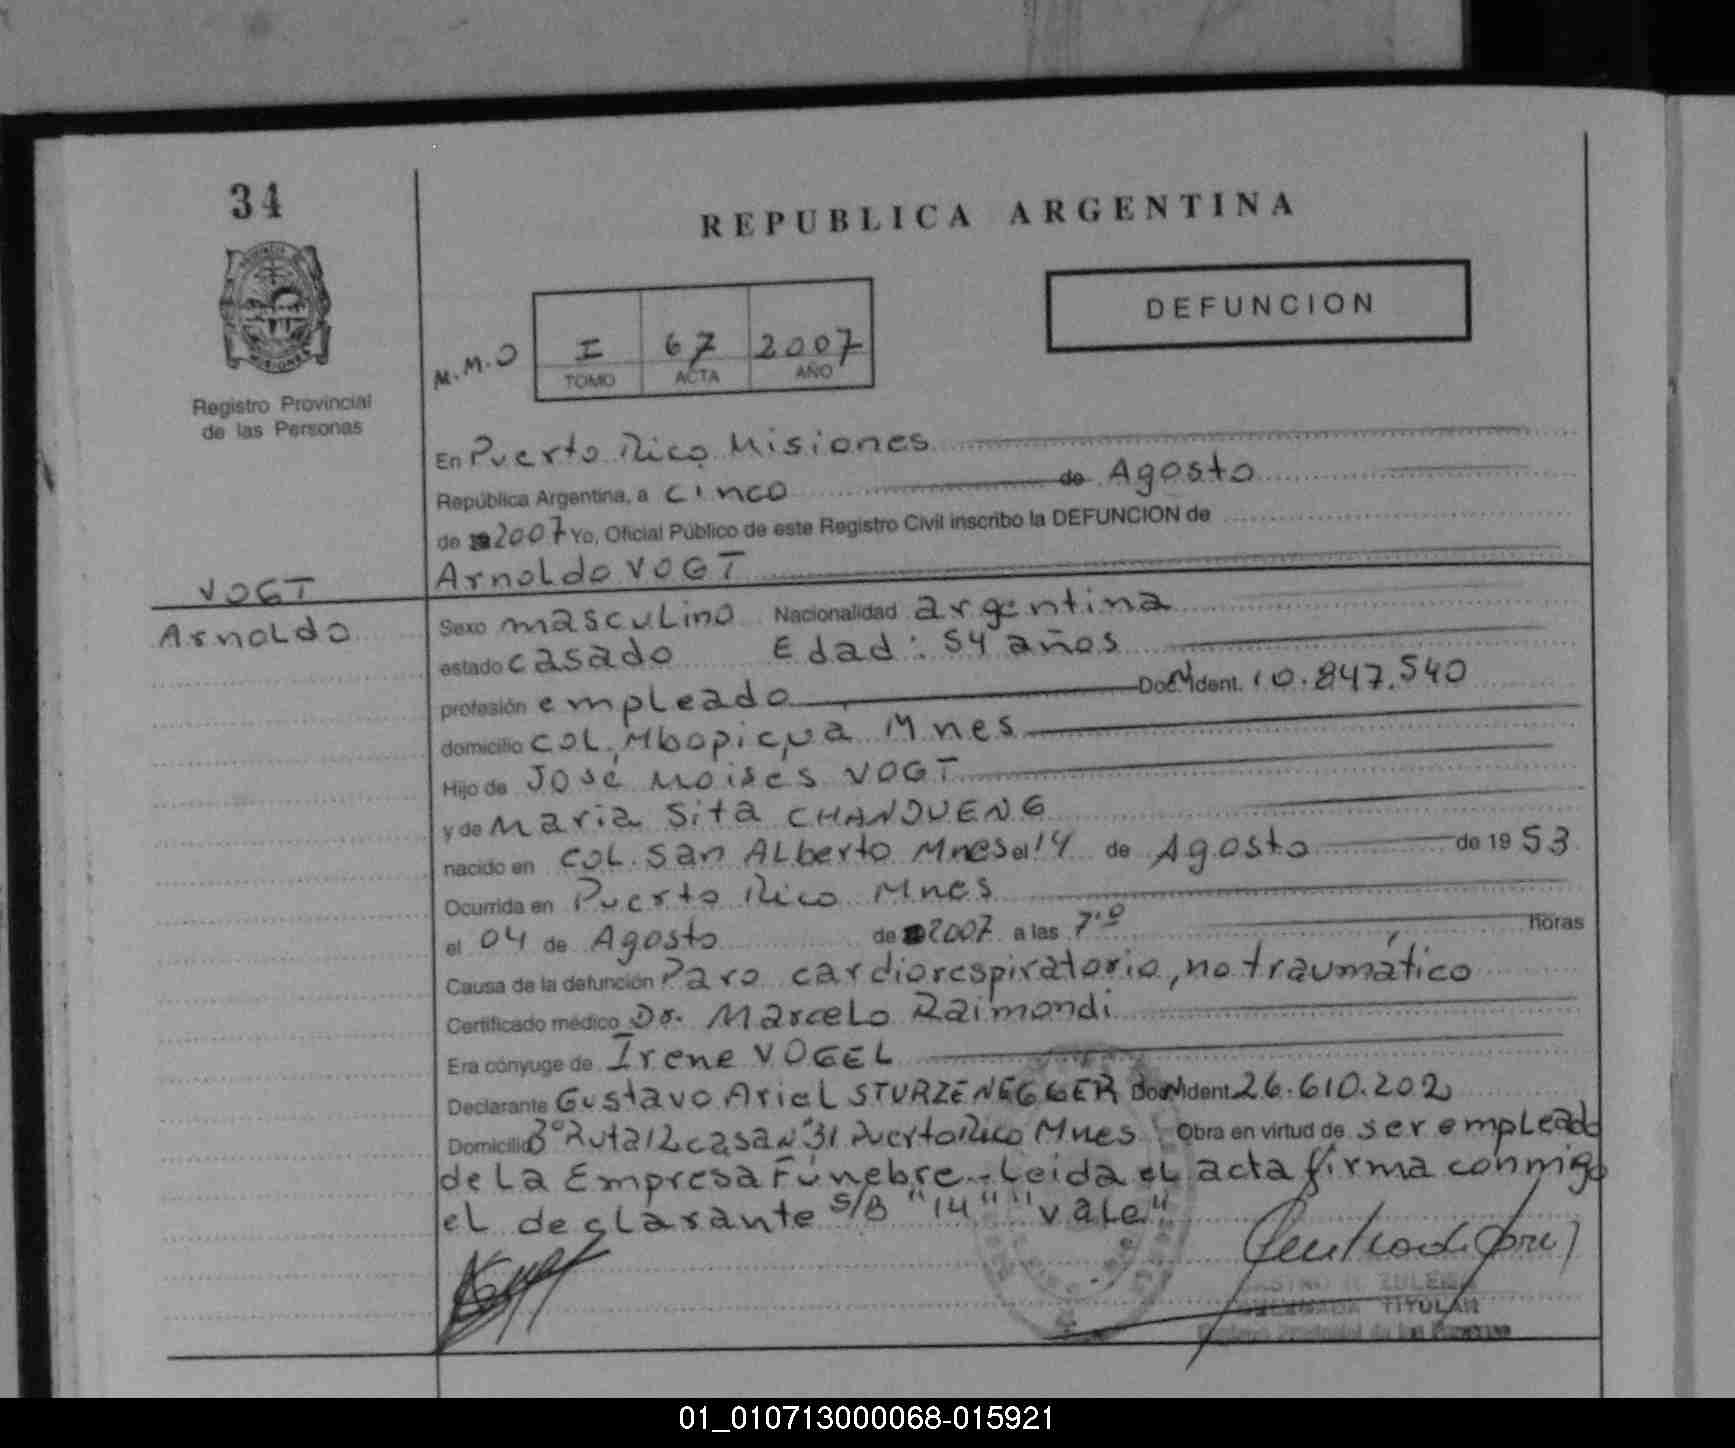 34
REPUBLICA ARGENTINA
DEFUNCION
M.M.O
I 67 2007
TOMO ACTA AÑO
Registro Provincial
de las Personas
En Puerto Rico Misiones
República Argentina, a cinco de Agosto
de 2007 Yo, Oficial Público de este Registro Civil inscribo la DEFUNCION de
Arnoldo VOGT
VOGT
Arnoldo
Sexo masculino Nacionalidad argentina
estado casado Edad: 54 años
profesión empleado Doc. Ident. 10.847.540
domicilio COL. Mbopicua Mnes
Hijo de José Moises VOGT
y de Maria Sita
nacido en COL. San Alberto Mnes el 14 de Agosto de 1953
Ocurrida en Puerto Rico Mnes
el 04 de Agosto de 2007 a las horas
Causa de la defunción Paro cardiorespiratorio, no traumático
Certificado médico Dr. Marcelo Raimondi
Era cónyuge de Irene VOGEL
Declarante Gustavo Ariel STURZENEGGER Ident. 26.610.202
Domicilio B° Ruta 12 casa N° 31 Puerto Rico Mnes Obra en virtud de ser empleado
de La Empresa Fúnebre.-Leida el acta firma conmigo
el declarante S/B "14" "vale"
TITULAR
01_010713000068-015921